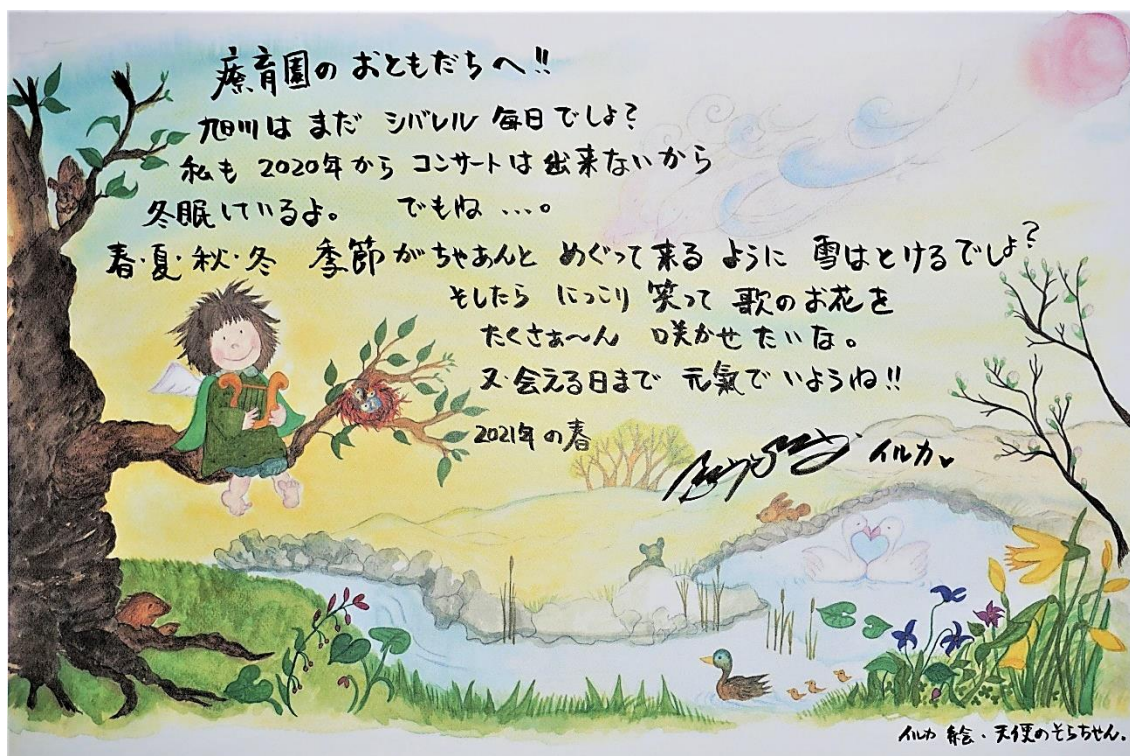 療育園の おともだちへ!!
旭川は まだ シバレル 毎日でしょ?
私も 2020年から コンサートは出来ないから
冬眠しているよ。 でもね …。
春・夏・秋・冬 季節がちゃあんと めぐって来る ように 雪はとけるでしょ?
そしたら にっこり 笑って 歌のお花を
たくさぁ〜ん 咲かせたいな。
又・会える日まで 元氣でいようね!!
2021年の春
イルカ
イルカ 絵・天使のそらちゃん。